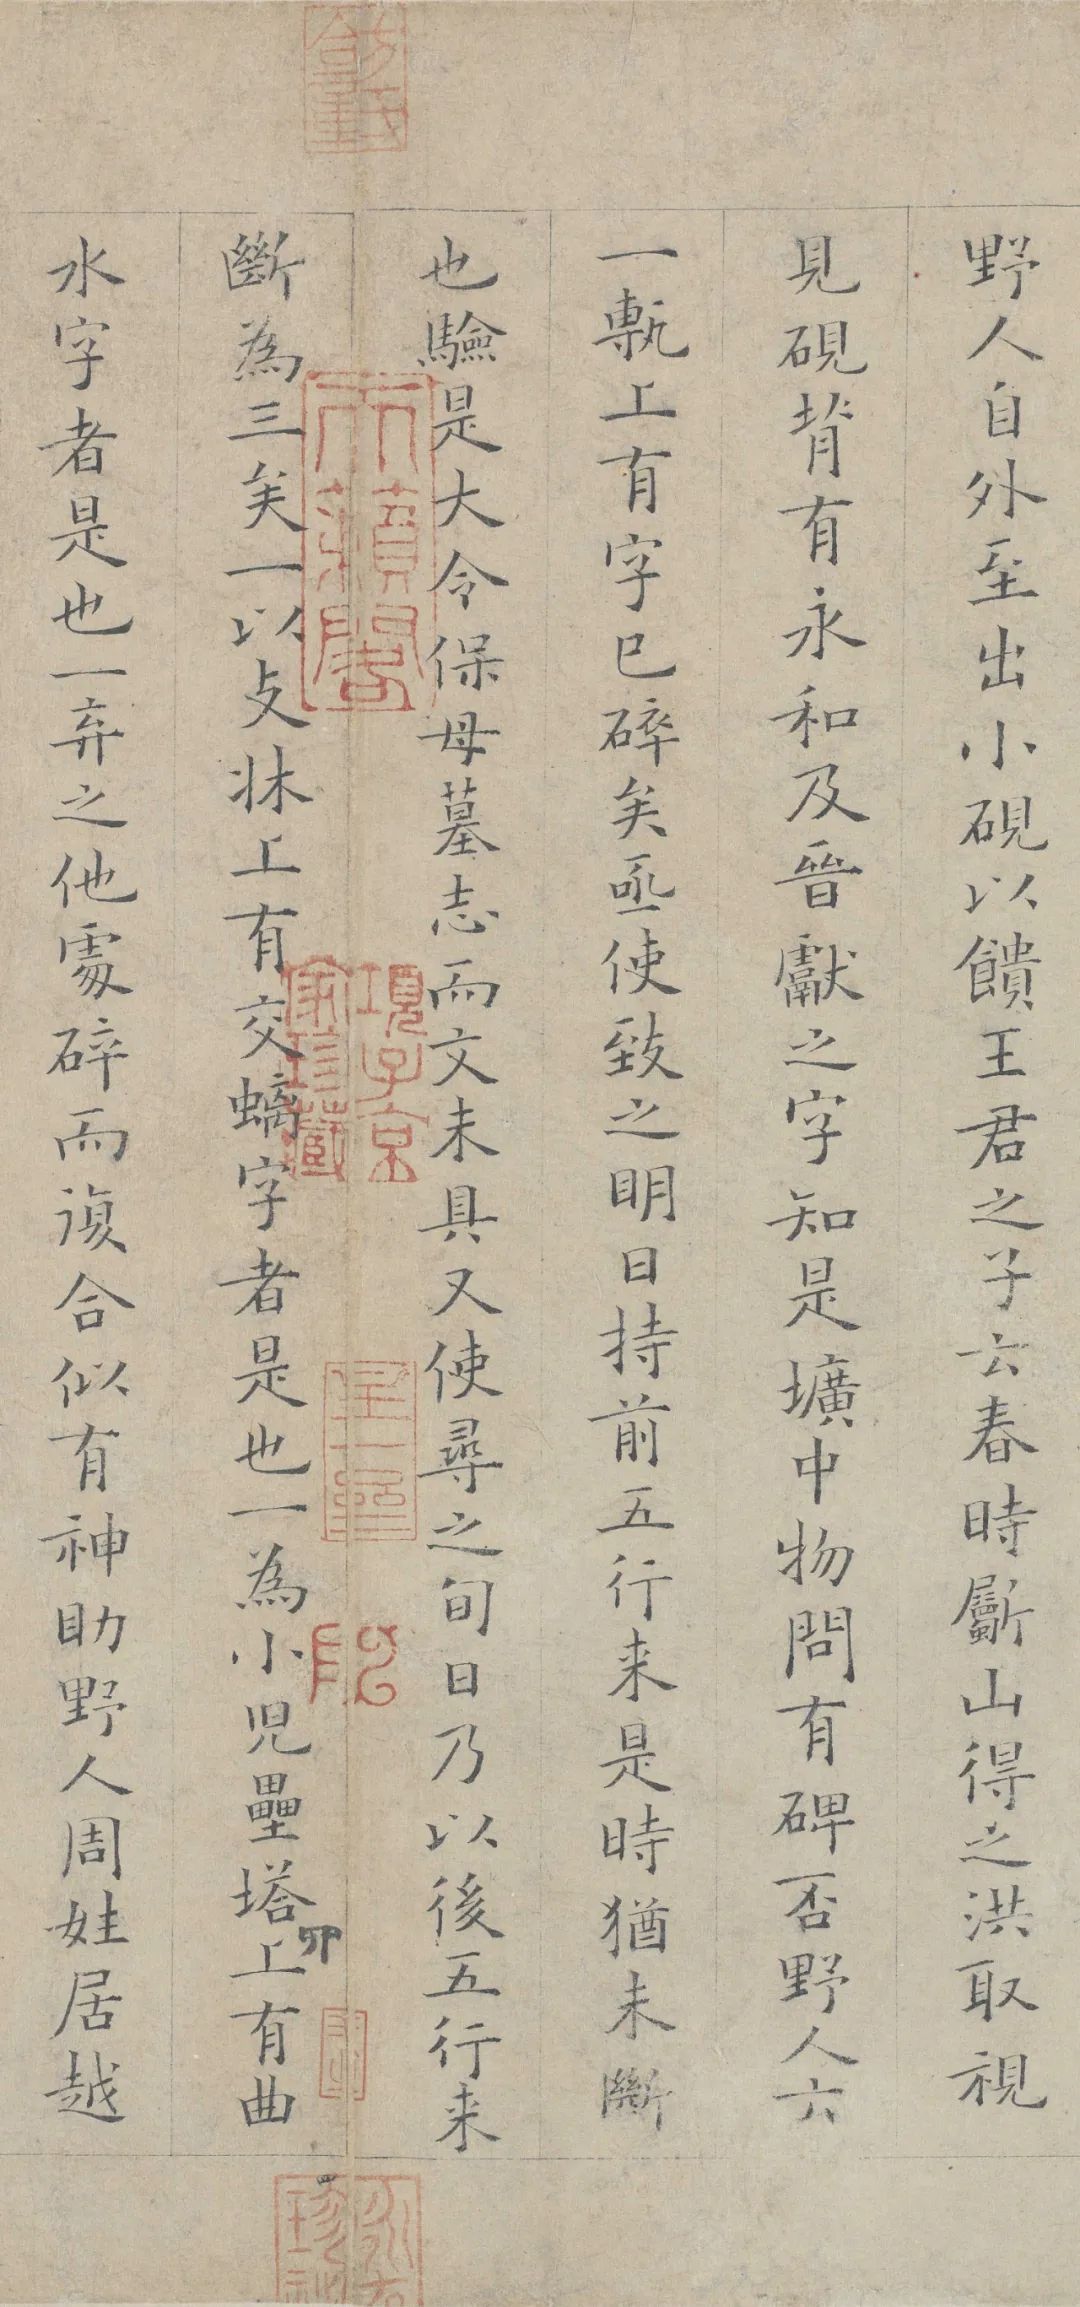 野人自外至出小硯以饋王君之子云春時斸山得之洪取視
見硯背有永和及晉獻之字知是壙中物問有碑否野人云
一甎上有字已碎矣亟使致之明日持前五行来是時猶未斷
也驗是大令保母墓志而文未具又使尋之旬日乃以後五行来
斷為三矣一以支牀上有交螭字者是也一為小児壘塔上有曲
水字者是也一弃之他處碎而復合似有神助野人周姓居越
天籟閣
項子京家珍藏